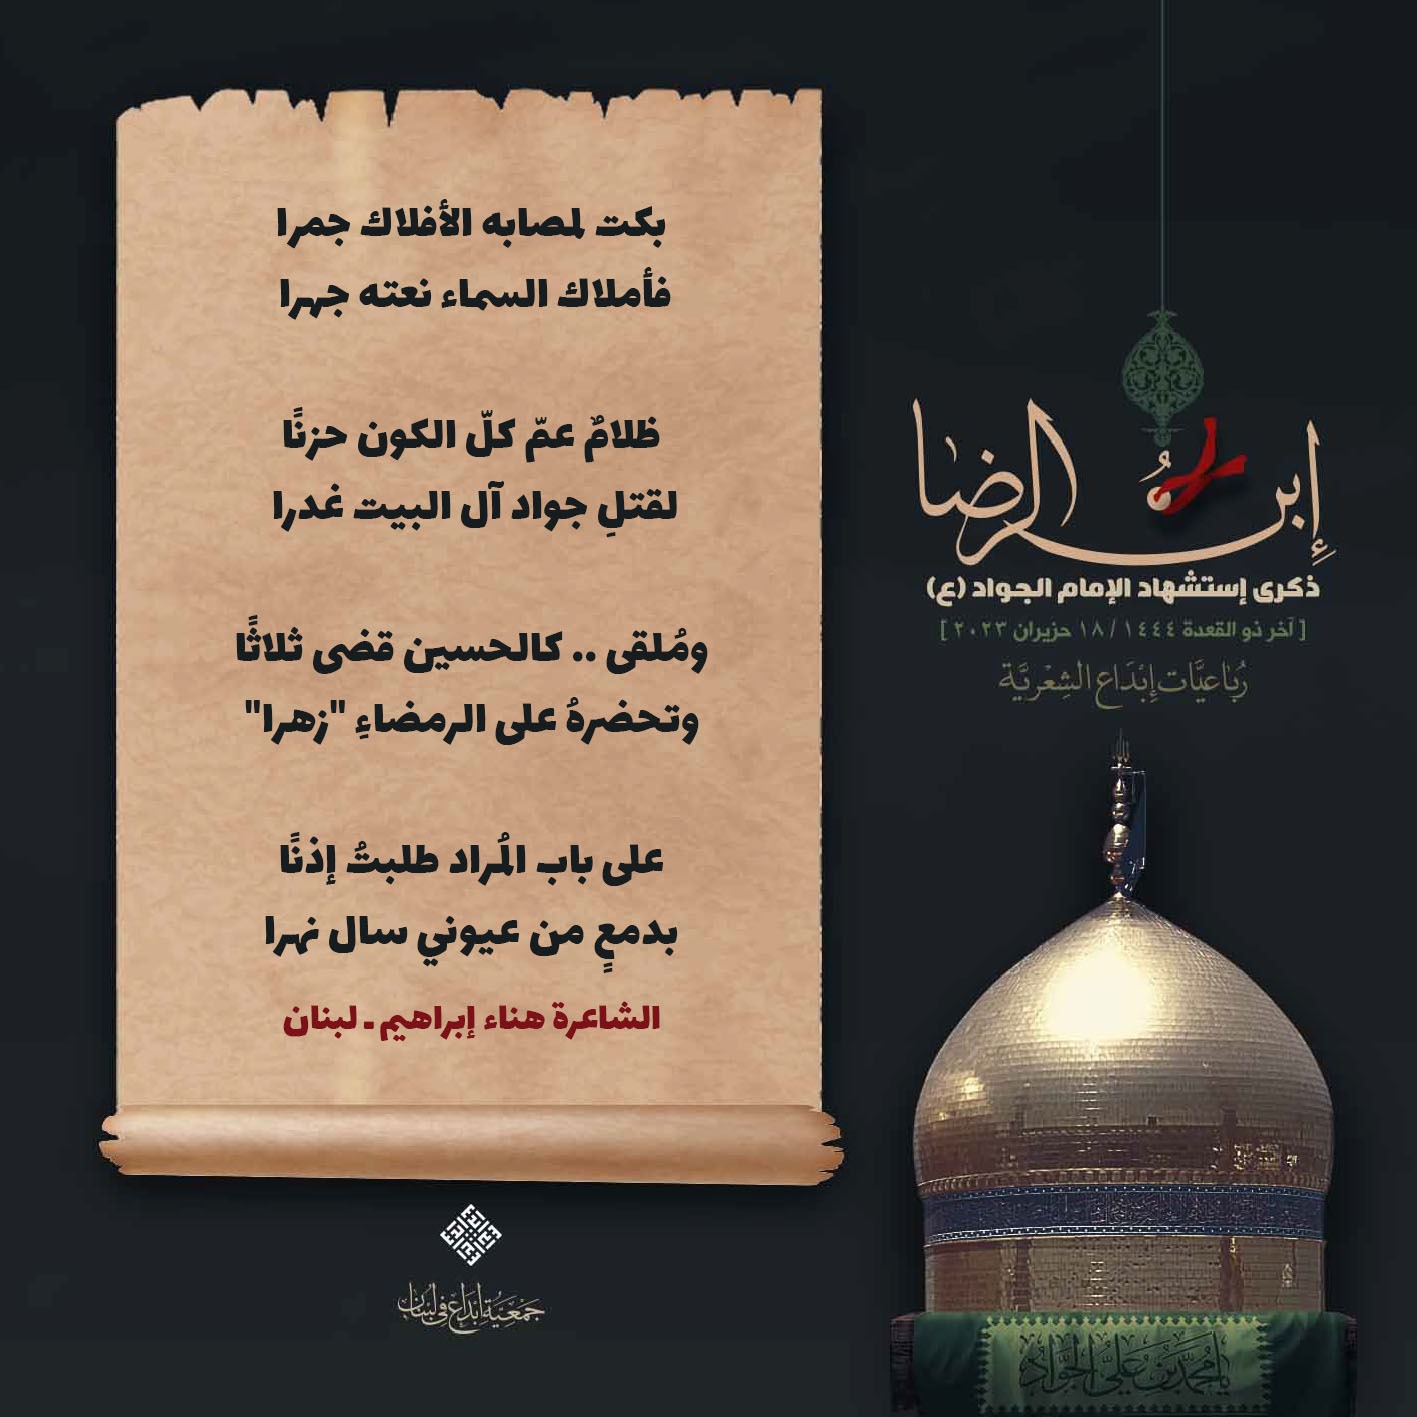 بكت لمصابه الأفلاك جمرا
فأملاك السماء نعته جهرا
ظلامٌ عمّ كلّ الكون حزنًا
لقتلِ جواد آل البيت غدرا
ومُلقى .. كالحسين قضى ثلاثًا
وتحضرهُ على الرمضاءِ "زهرا"
على باب المُراد طلبتُ إذنًا
بدمعٍ من عيوني سال نهرا
الشاعرة هناء إبراهيم - لبنان
إبن الرضا
ذكرى إستشهاد الإمام الجواد (ع)
[ آخر ذو القعدة ١٤٤٤ / ١٨ حزيران ٢٠٢٣ ]
رُبَاعيَّات إبْدَاع الشِعْريَّة
يا محمد بن علي الجواد
جمعية إبداع في لبنان